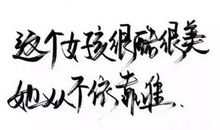 这个女孩很酷很美
她从不依靠谁、